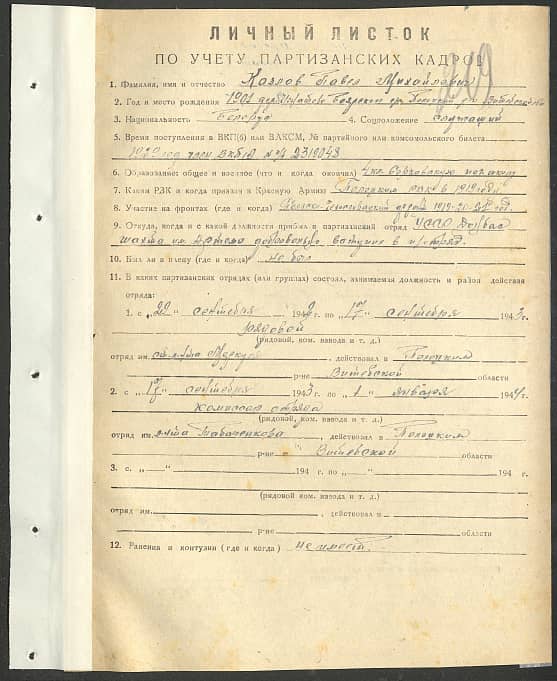 ЛИЧНЫЙ ЛИСТОК
ПО УЧЕТУ ПАРТИЗАНСКИХ КАДРОВ
1. Фамилия, имя и отчество Козлов Павел Михайлович
2. Год и место рождения 1901
3. Национальность Белорус 4. Соцположение служащий
5. Время поступления в ВКП(б) или ВЛКСМ, № партийного или комсомольского билета
1929 год член ВКП(б) №
6. Образование: общее и военное (что и когда окончил)
7. Каким РЗК и когда призван в Красную Армию Полоцким в 1919 году
8. Участие на фронтах (где и когда) 1919-20-21 год.
9. Откуда, когда и с какой должности прибыл в партизанский отряд УССР Донбас
шахта им. Артема добровольно вступил в п/отряд.
10. Был ли в плену (где и когда) не был
11. В каких партизанских отрядах (или группах) состоял, занимаемая должность и район действия
отряда:
1. с „22“ сентября 1942 г. по „17“ сентября 1943 г.
рядовой
(рядовой, ком. взвода и т. д.)
отряд им. , действовал в Полоцким
р-не Витебской области
2. с „17“ сентября 1943 г. по „1“ января 1944 г.
комиссар отряда
(рядовой, ком. взвода и т. д.)
отряд им. , действовал в Полоцким
р-не Витебской области
3. с „ “ 194 г. по „ “ 194 г.
(рядовой, ком. взвода и т. д.)
отряд им. , действовал в
р-не области
12. Ранения и контузии (где и когда) не имеет.